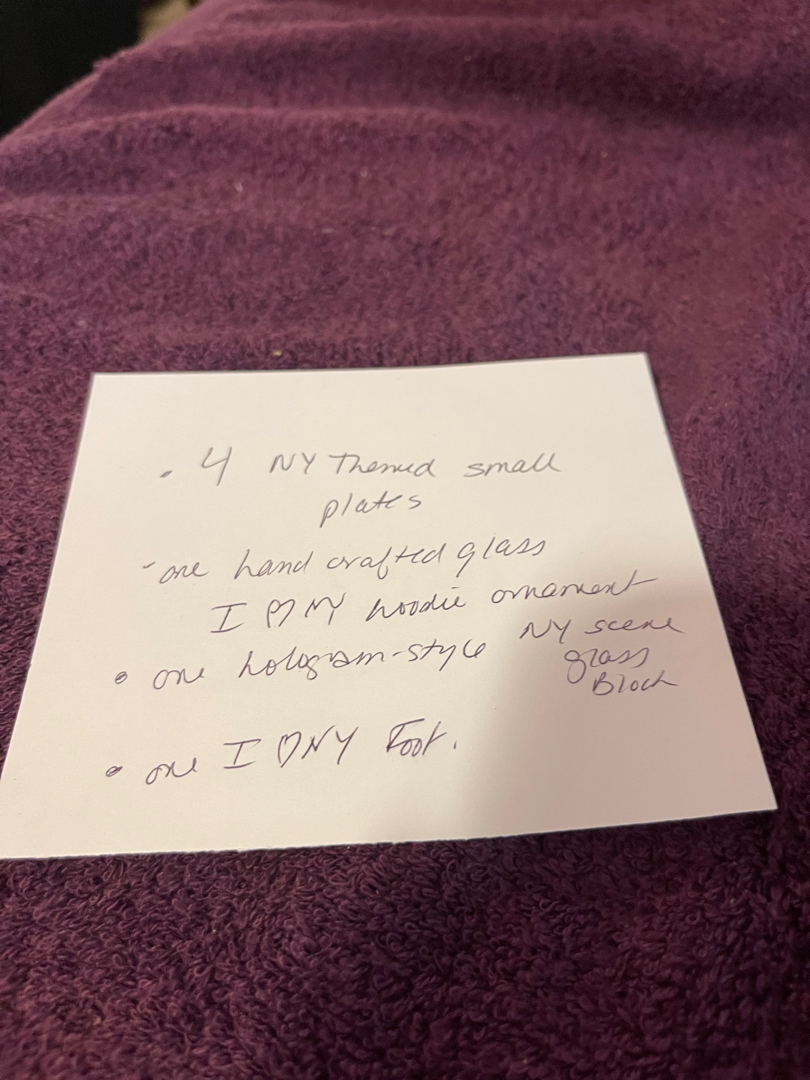 • 4 NY Themed small
plates
- one hand crafted glass
I ♡ NY hoodie ornament
• one hologram-style NY scene
glass
Block
• one I ♡ NY Foot.